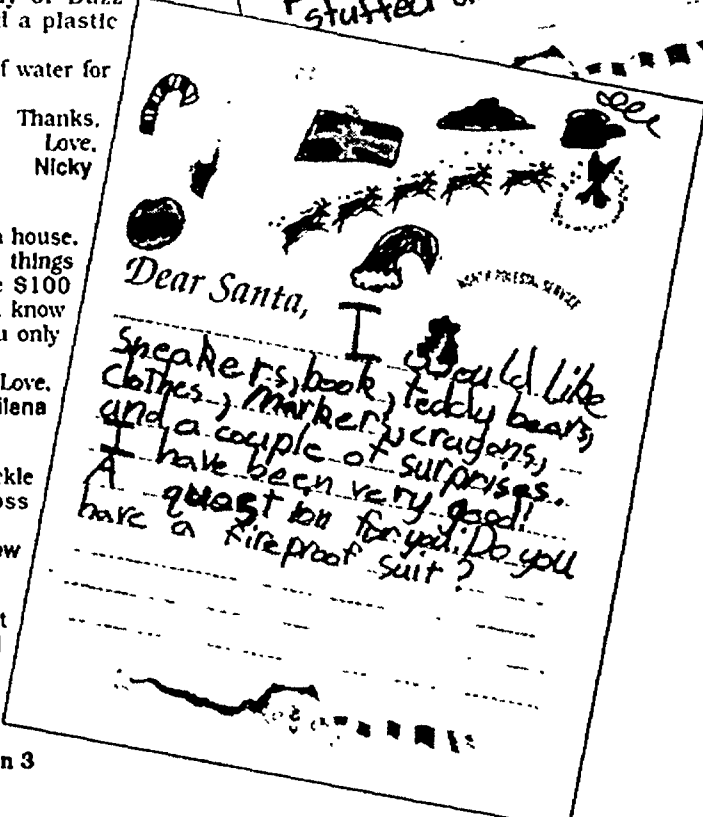 stuffed
a plastic
of water for
Thanks.
Love,
Nicky
house.
things
$100
know
only
Love,
ilena
kle
oss
ow
t
n 3
Dear Santa,
NORTH POLE
SERVICE
I would like
Sneakers, book, teddy bears,
clothes, markers, crayons,
and a couple of surprises.
I have been very good!
A question for you: Do you
have a fireproof suit?